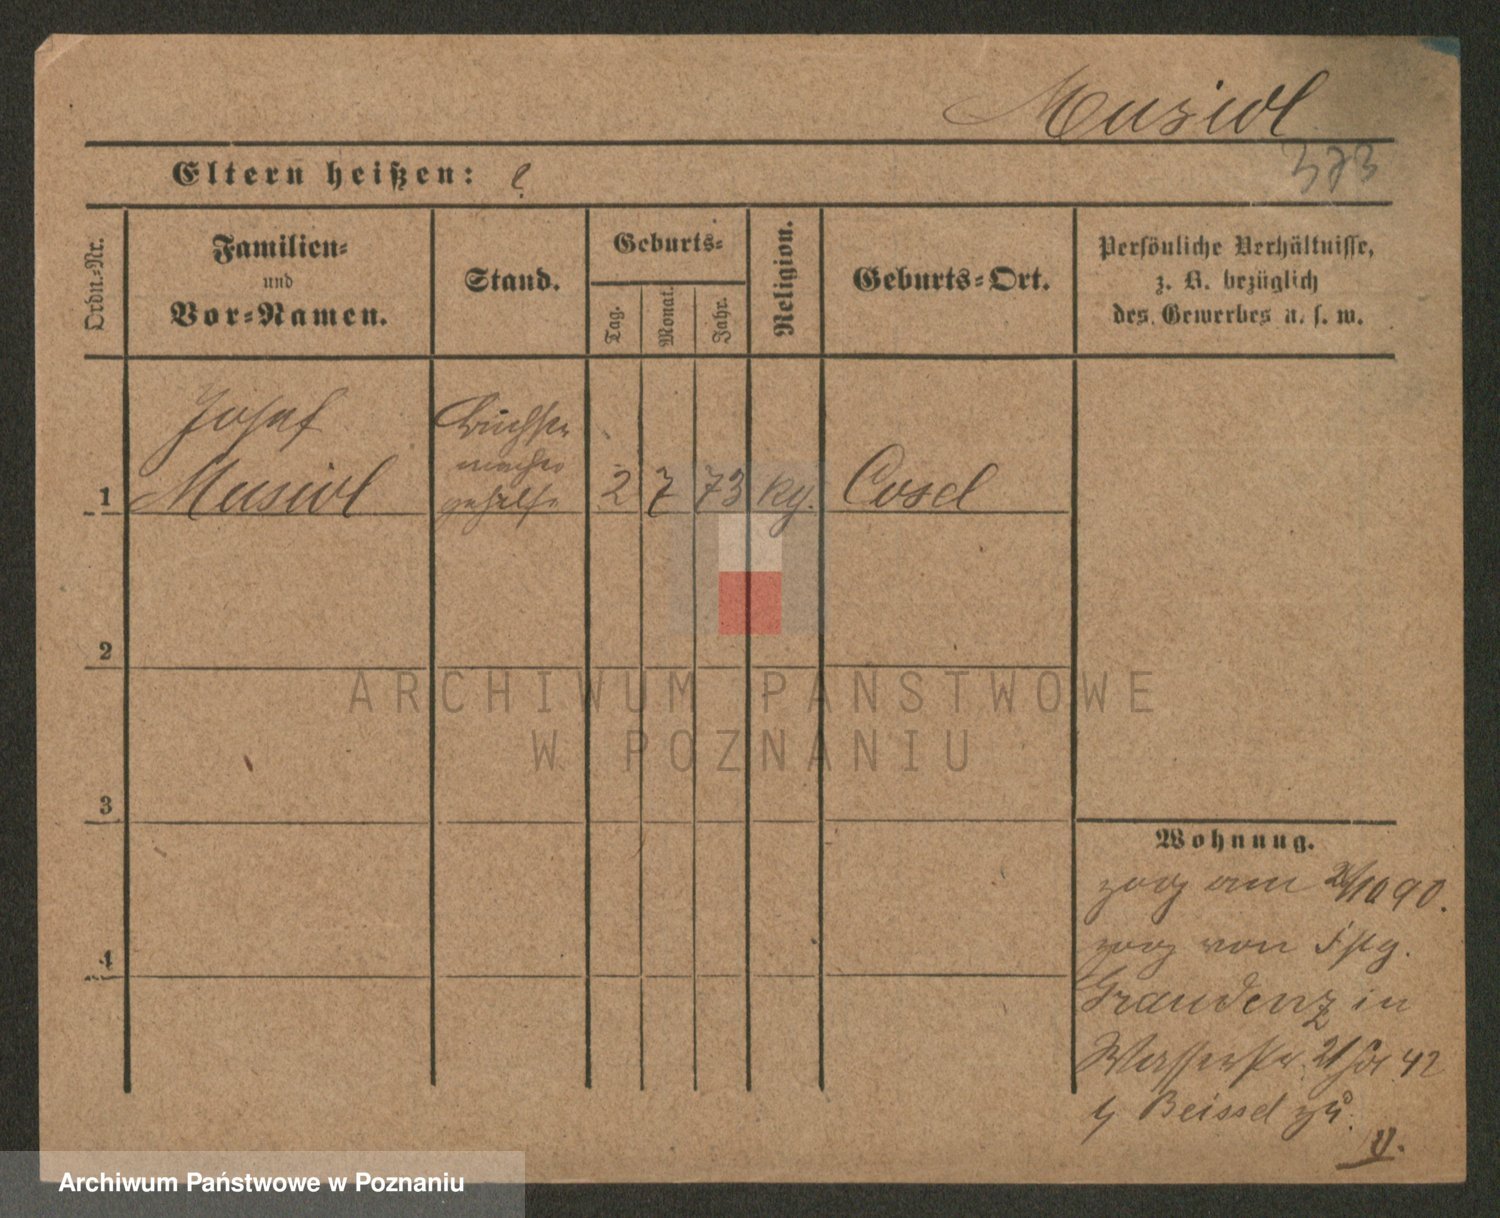 Musiol
373
Eltern heißen: ?
Ordn.-Nr.
Familien-
und
Vor-Namen.
Stand.
Geburts-
Tag.
Monat.
Jahr.
Religion.
Geburts-Ort.
Persönliche Verhältnisse,
z. B. bezüglich
des Gewerbes u. s. w.
Josef
Büchsen
macher
gehülfe
1 Musiol 2 7 73 Cosel
2
3
4
Wohnung.
zog am 10 90.
zog von Fstg.
Graudenz in
Wasserstr. 42
b Beissel zu.
ARCHIWUM PAŃSTWOWE
W POZNANIU
Archiwum Państwowe w Poznaniu